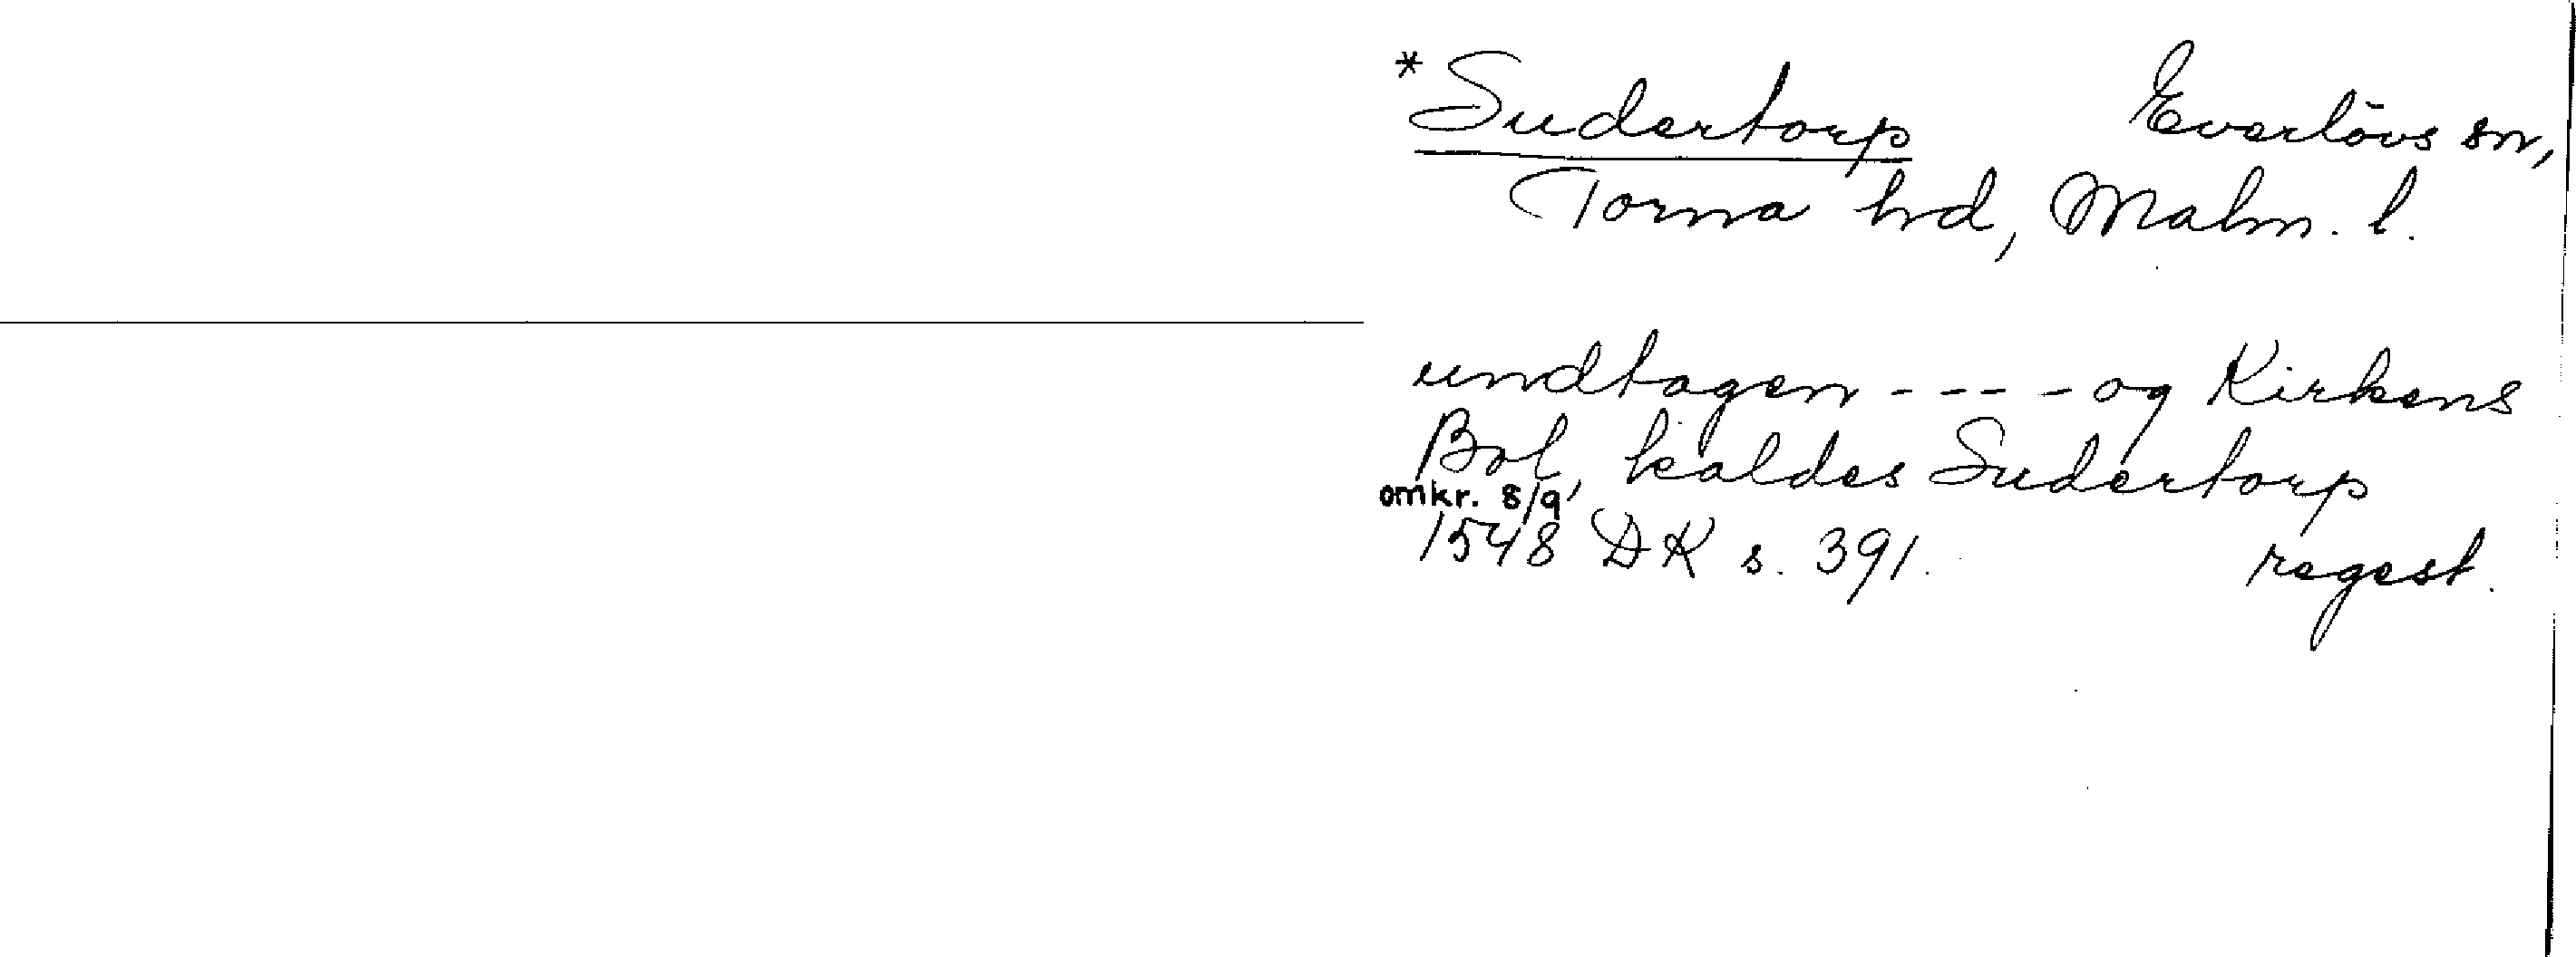 *Sudertorp Everlövs sn,
Torna hd, Malm. l.
undtagen - - - - og Kirkens
Bol, kaldes Sudertorp
omkr. 8/9
1548 DK s. 391. regest.